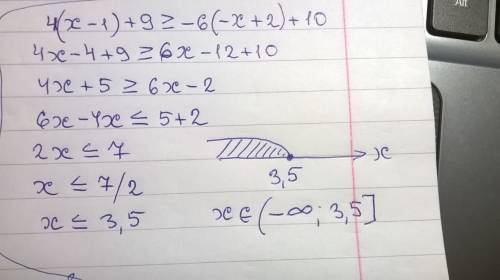 4(x-1)+9≥-6(-x+2)+10
4x-4+9≥6x-12+10
4x+5≥6x-2
6x-4x≤5+2
2x≤7
x≤7/2
x≤3,5
x
3,5
x∈(-∞; 3,5]
Alt